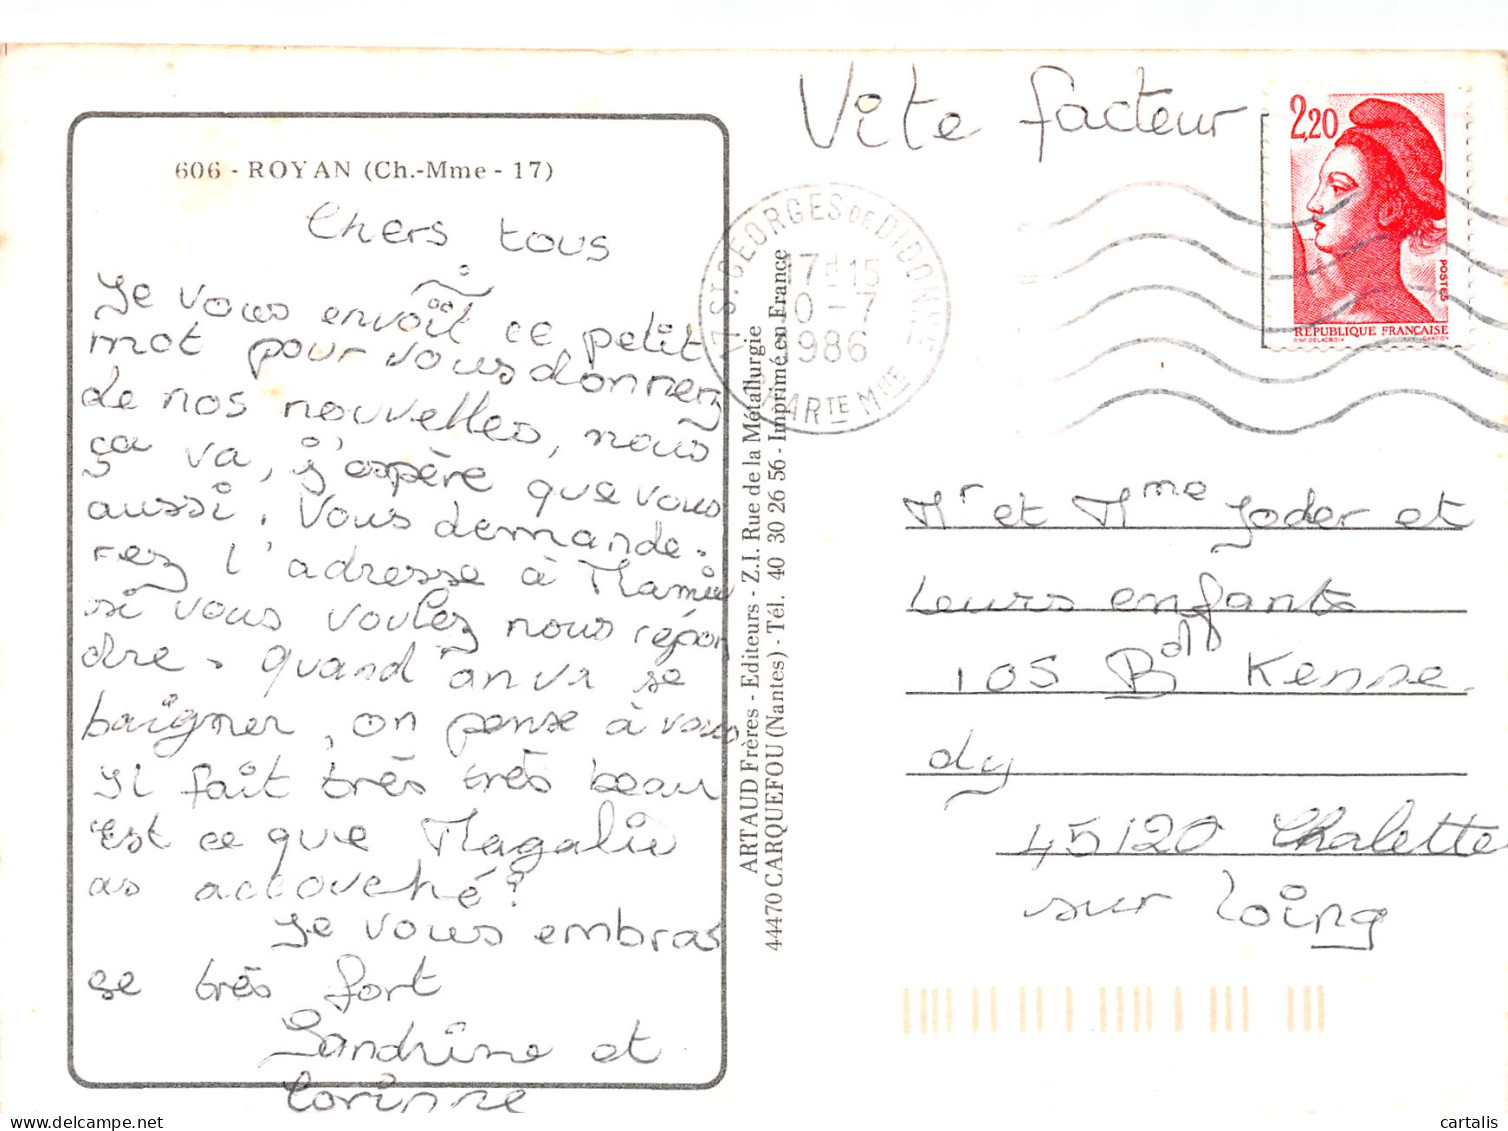 606 - ROYAN (Ch.-Mme - 17)
Chers tous
Je vous envoît ce petit
mot pour vous donnerz
de nos nouvelles, nous
ça va, j'espère que vous
aussi. Vous demande-
rez l'adresse à Mamie
si vous voulez nous répon
dre. quand an va se
baigner, on pense à vous
Il fait très très beau
Est ce que Magalie
as accouché?
Je vous embras
se très fort
Sandrine et
Corinne
ARTAUD Frères - Editeurs - Z.I. Rue de la Métallurgie
44470 CARQUEFOU (Nantes) - Tél. 40 30 26 56 - Imprimé en France
Vite facteur
17 ST GEORGES DE DIDONNE
17H15
10-7
1986
CHARTE MME
2,20
POSTES
RÉPUBLIQUE FRANÇAISE
D'AP. DELACROIX GANDON
Mr et Mme Joder et
leurs enfants
105 Bd Kenne
dy
45120 Chalette
sur Loing
cartalis